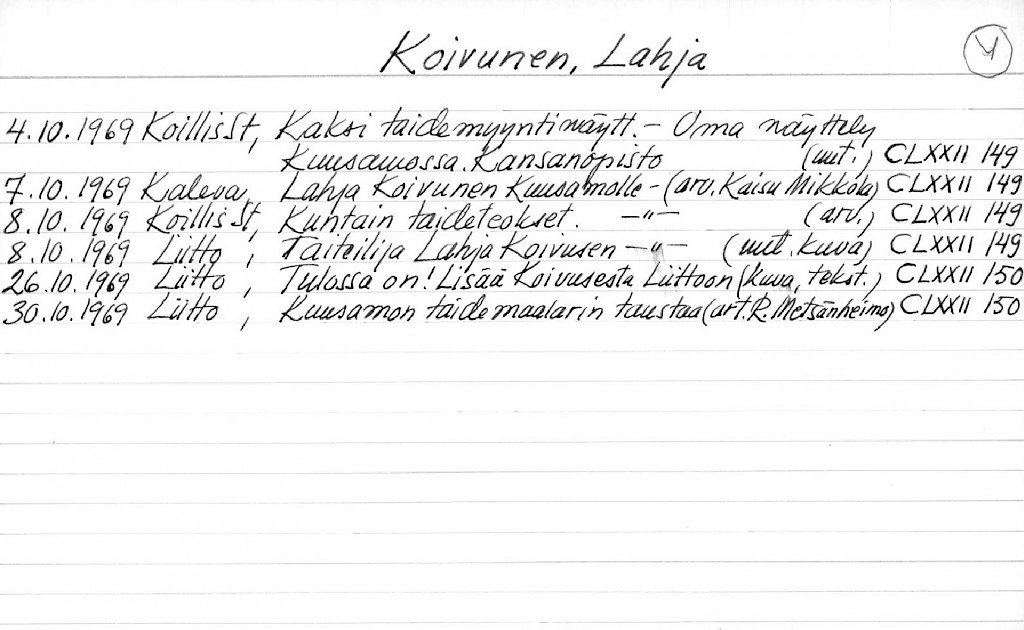 Koivunen, Lahja
4
4.10.1969 KoillisSt, Kaksi taidemyyntinäytt. – Oma näyttely
Kuusamossa. Kansanopisto (uut.) CLXXII 149
7.10.1969 Kaleva, Lahja Koivunen Kuusamolle – (arv. Kaisu Mikkola) CLXXII 149
8.10.1969 KoillisSt, Kuhtain taideteokset. —"— (arv.) CLXXII 149
8.10.1969 Liitto, Taiteilija Lahja Koivusen —"— (uut. kuva) CLXXII 149
26.10.1969 Liitto, Tulossa on! Lisää Koivusesta Liittoon (kuva, tekst.) CLXXII 150
30.10.1969 Liitto, Kuusamon taidemaalarin taustaa (art. R. Metsänheimo) CLXXII 150